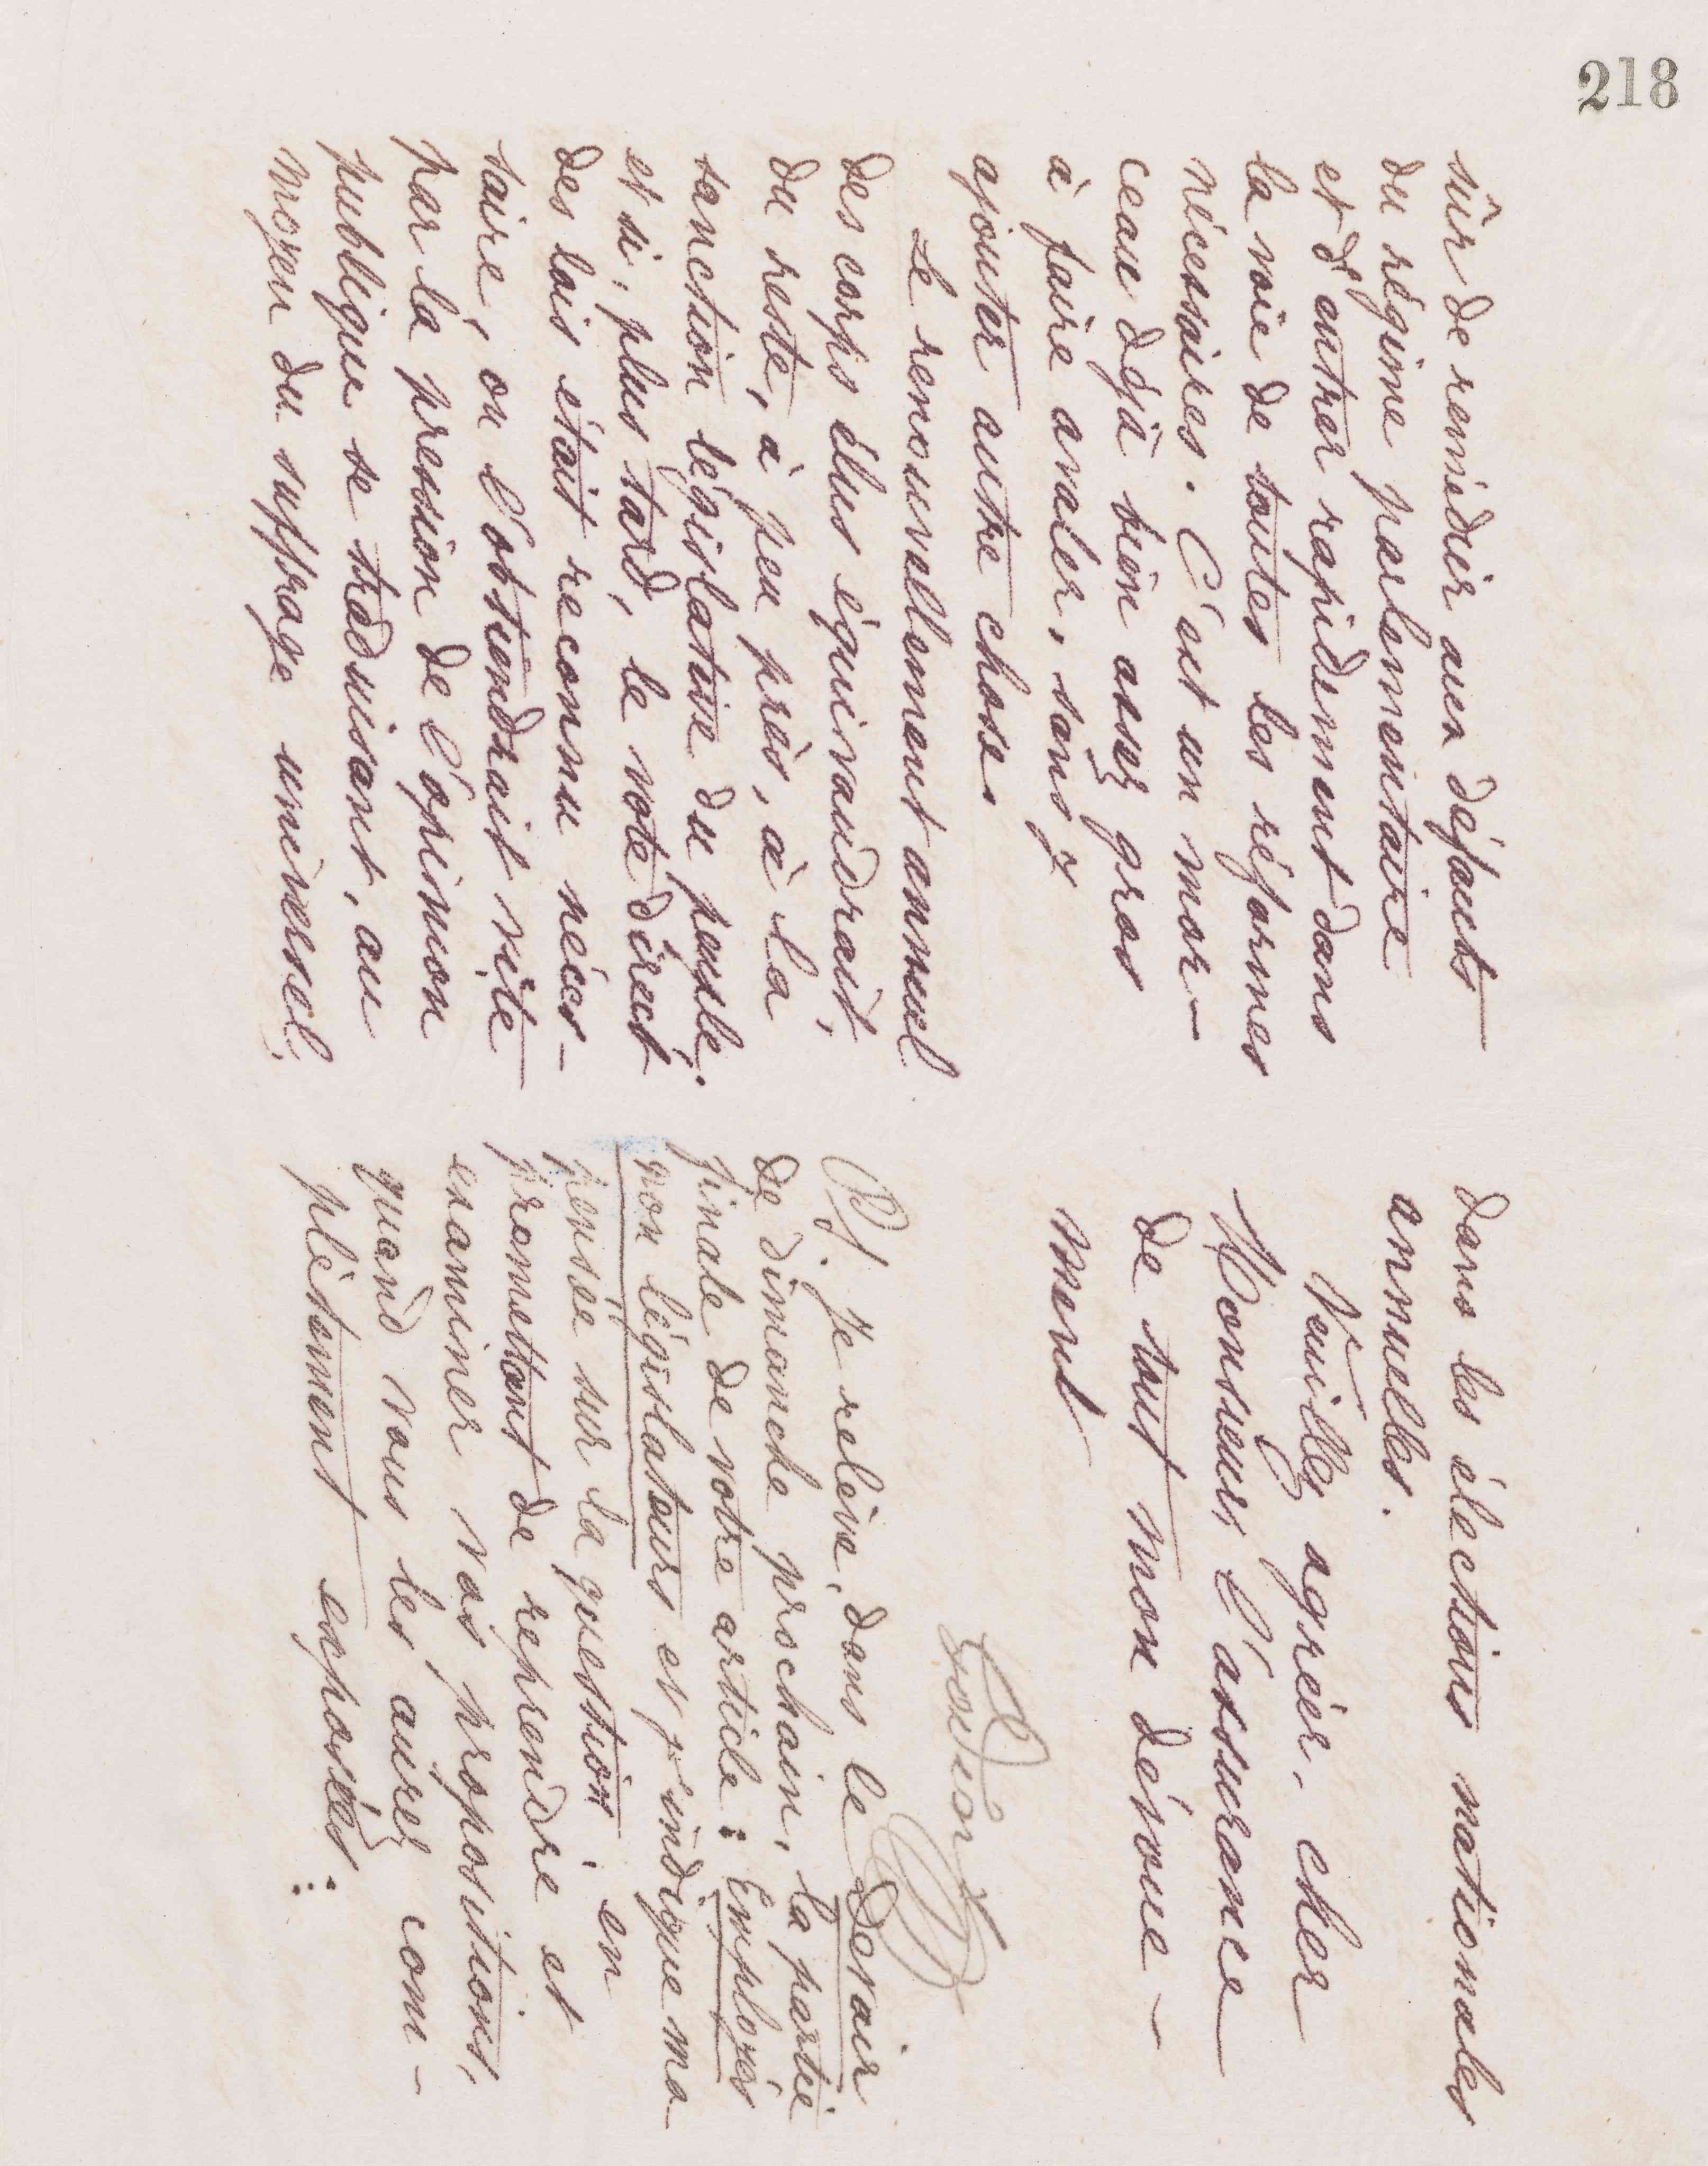 218
sûr de remédier aux défauts
du régime parlementaire
et d'entrer rapidement dans
la voie de toutes les réformes
nécessaires. C'est un mor-
ceau déjà bien assez gros
à faire avaler, sans y
ajouter autre chose.
Le renouvellement annuel
des corps élus équivaudrait,
du reste, à peu près, à la
sanction législative du peuple.
et si, plus tard, le vote direct
des lois était reconnu néces-
saire, on l'obtiendrait vite
par la pression de l'opinion
publique se traduisant, au
moyen du suffrage universel,
dans les élections nationales
annuelles.
Veuillez agréer, cher
Monsieur, l'assurance
de tout mon dévoue-
ment
Godin
PS. Je relève, dans le Devoir
de dimanche prochain, la partie
finale de votre article : Employés
non législateurs et j'indique ma
pensée sur la question, en
promettant de reprendre et
examiner vos propositions,
quand vous les aurez com-
plètement exposées.